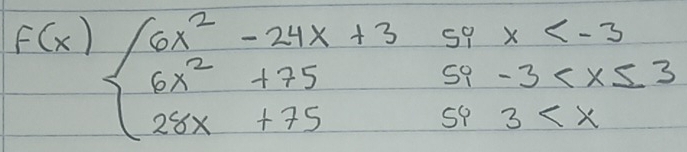 F(x) { 6x² - 24x + 3 si x < -3
6x² + 75 si -3 < x ≤ 3
28x + 75 si 3 < x